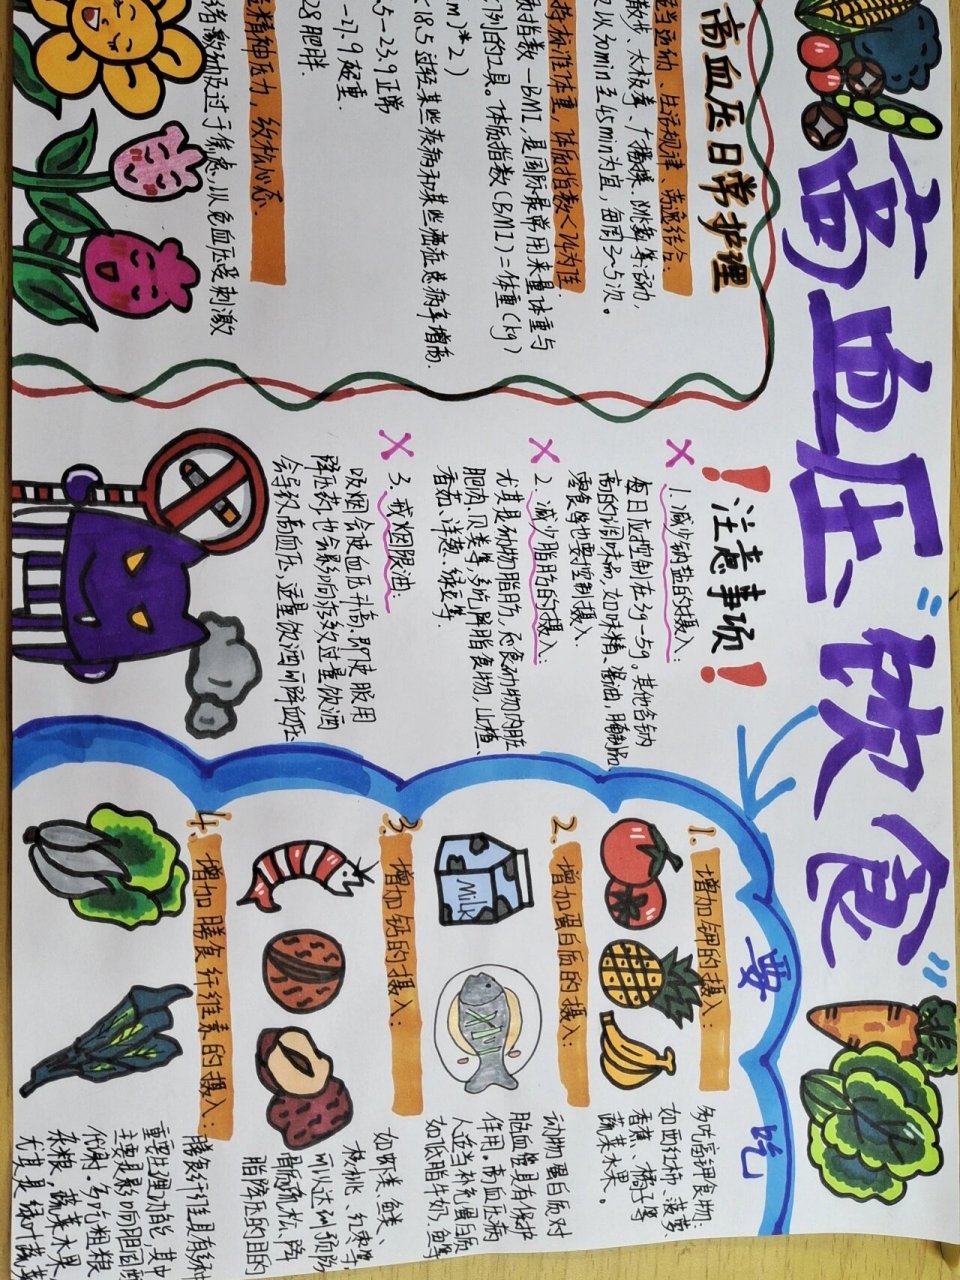 高血压“饮食”
高血压日常护理
适当运动、生活规律、劳逸结合:
散步、太极拳、广播操、跳舞等活动,
以30min至45min为宜,每周3~5次。
持标准体重,体质指数<24为佳.
质指数—BMI,是国际最常用来量体重与
工具。体质指数(BMI)=体重(kg)
m)^2)
<18.5过轻某些疾病和某些癌症患病率增高.
.5—23.9正常
—27.9超重.
28肥胖.
精神压力,放松心态.
绪激动及过于焦虑,以免血压受刺激
!注意事项!
×1.减少钠盐的摄入:
每日应控制在3g—5g。其他含钠
高的调味品,如味精、酱油,腌制品
零食等也要控制摄入.
×2.减少脂肪的摄入:
尤其是动物脂肪,忌食动物内脏
肥肉.贝类等,多吃降脂食物,山楂、
香菇、洋葱、绿豆等.
×3.戒烟限酒:
吸烟会使血压升高.即使服用
降压药也会影响疗效过量饮酒
会导致高血压,适量饮酒可降血压
要吃
1.增加钾的摄入:
多吃富钾食物:
如西红柿、菠萝、
香蕉、橘子等
蔬菜水果。
2.增加蛋白质的摄入:
Milk
动物蛋白质对
脑血管具有保护
作用.高血压病
人适当补充蛋白质
如低脂牛奶.鱼等
3.增加钙的摄入:
如虾类、鱼类、
核桃、红枣等.
可以达到预防
骨质疏松、降
脂降压的目的
4.增加膳食纤维素的摄入:
膳食纤维具有多种
重要生理功能,其中
主要是影响胆固醇
代谢.多吃粗粮
杂粮,蔬菜水果
尤其是绿叶蔬菜